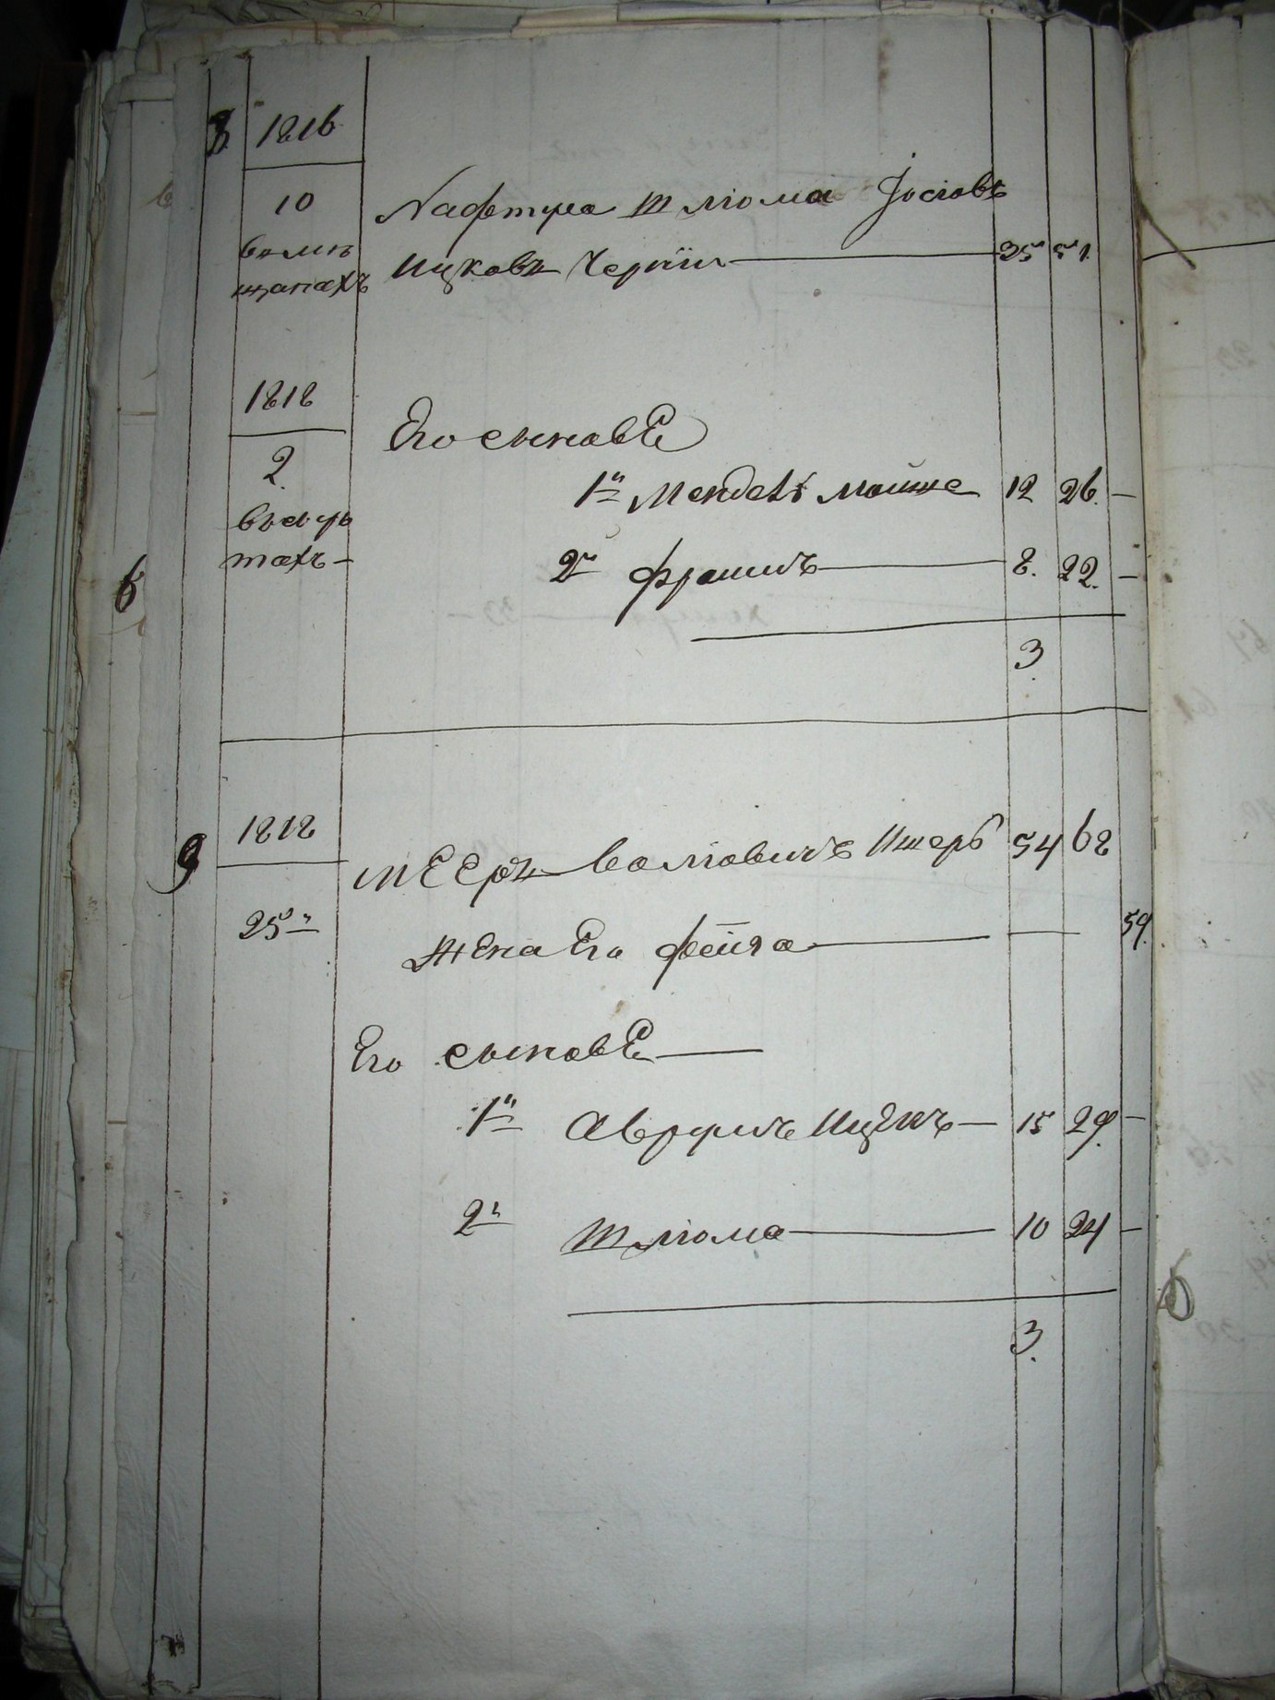 8
1816
10
въ мѣ
щанахъ
Нафтула Шлiома Iосiовъ
Ицковъ Чернiи 35 51
1818
2
въ куп
тахъ
Его сыновЕ
1й Мендель Мойше 12 26 —
2й Фроимъ 8. 22. —
3
6
9
1818
25й
МЕеръ Волiовичъ Ишеръ 54 68
Жена Его Фейга — 59
Его сыновЕ
1й Аврумъ Ицекъ — 15 29 —
2й Шлiома 10 24 —
3.